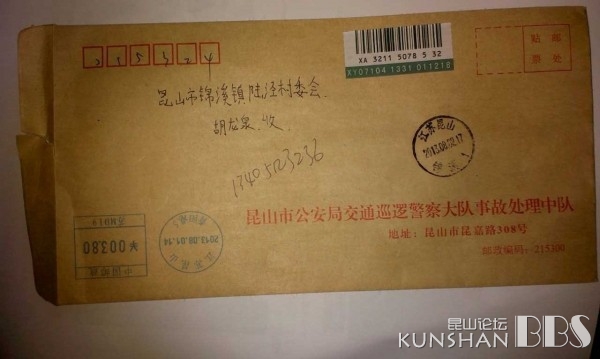 215324
XA 3211 5078 5 32
X107104 1331 011218
贴 邮
票 处
昆山市锦溪镇陆泾村委会
胡龙泉 收
13405123236
江苏昆山
2013.08.02.17
昆山市公安局交通巡逻警察大队事故处理中队
地址：昆山市昆嘉路308号
邮政编码：215300
¥003.80
中国邮政
2013.08.01.14
江苏昆山
昆山论坛
KUNSHAN BBS